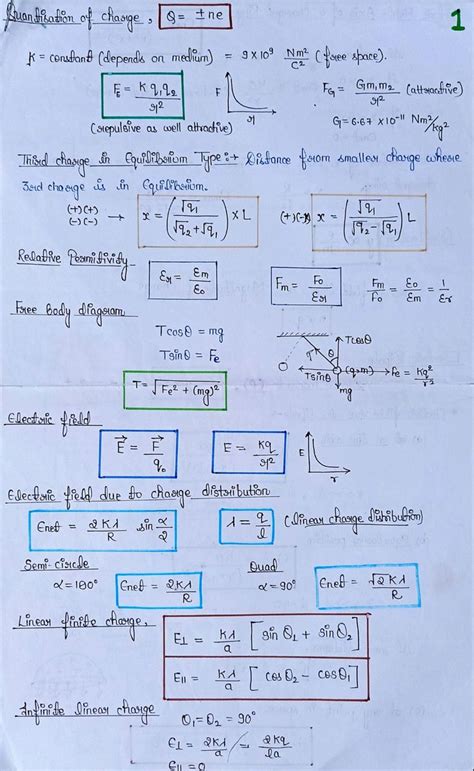 Quantisation of charge, Q = ±ne
1
K = constant (depends on medium) = 9 × 10⁹ Nm²/C² (free space).
Fₑ = K q₁q₂/r²
F
r
F_G = Gm₁m₂/r² (attractive)
(repulsive as well attractive)
G = 6.67 × 10⁻¹¹ Nm²/kg²
Third charge in Equilibrium Type :→ Distance from smaller charge where
3rd charge is in Equilibrium.
(+)(+)
(-)(-) → x = (√q₁/(√q₂+√q₁)) × L
(+)(-) x = (√q₁/(√q₂-√q₁)) L
Relative Permitivity
εr = εm/εo
Fm = Fo/εr
Fm/Fo = εo/εm = 1/εr
Free body diagram
Tcosθ = mg
Tsinθ = Fe
T = √(Fe² + (mg)²)
Tcosθ
T
θ
Tsinθ
(q,m)
Fe = Kq²/r²
mg
Electric field
E⃗ = F⃗/q₀
E = kq/r²
E
r
Electric field due to charge distribution
Enet = 2Kλ/R sin α/2
λ = q/l (linear charge distribution)
Semi-circle
α = 180°
Enet = 2Kλ/R
Quad
α = 90°
Enet = √2Kλ/R
Linear finite charge,
E⊥ = Kλ/a [sinθ₁ + sinθ₂]
E॥ = Kλ/a [cosθ₂ - cosθ₁]
Infinite linear charge
θ₁ = θ₂ = 90°
E⊥ = 2Kλ/a = 2Kq/la
E॥ = 0